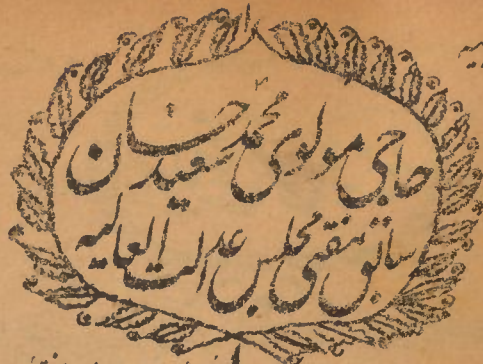 حاجی مولوی محمد سعید خان
سابق مفتی مجلس عدالت العالیہ